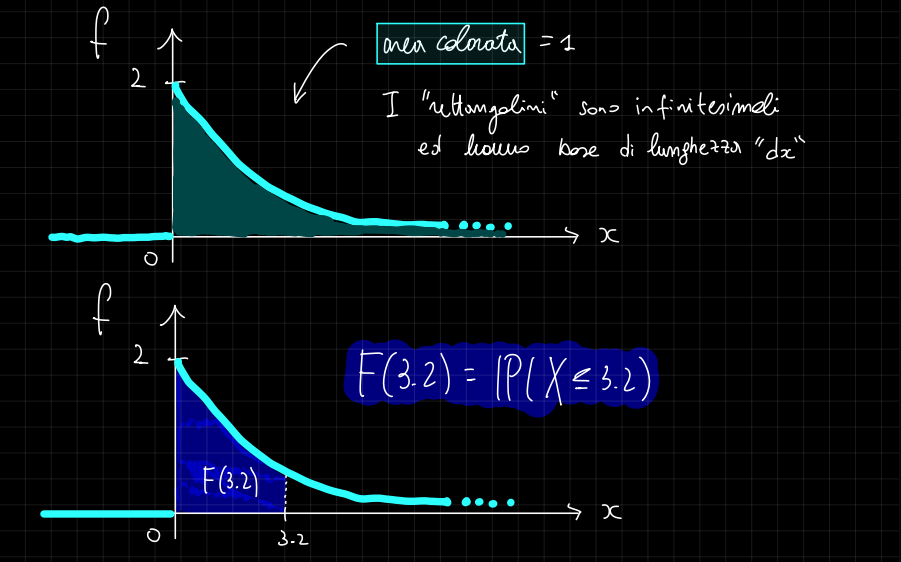 f
area colorata = 1
2
I "rettangolini" sono infinitesimali
ed hanno base di lunghezza "dx"
x
0
f
2
F(3.2) = P(X ≤ 3.2)
F(3.2)
x
0
3.2